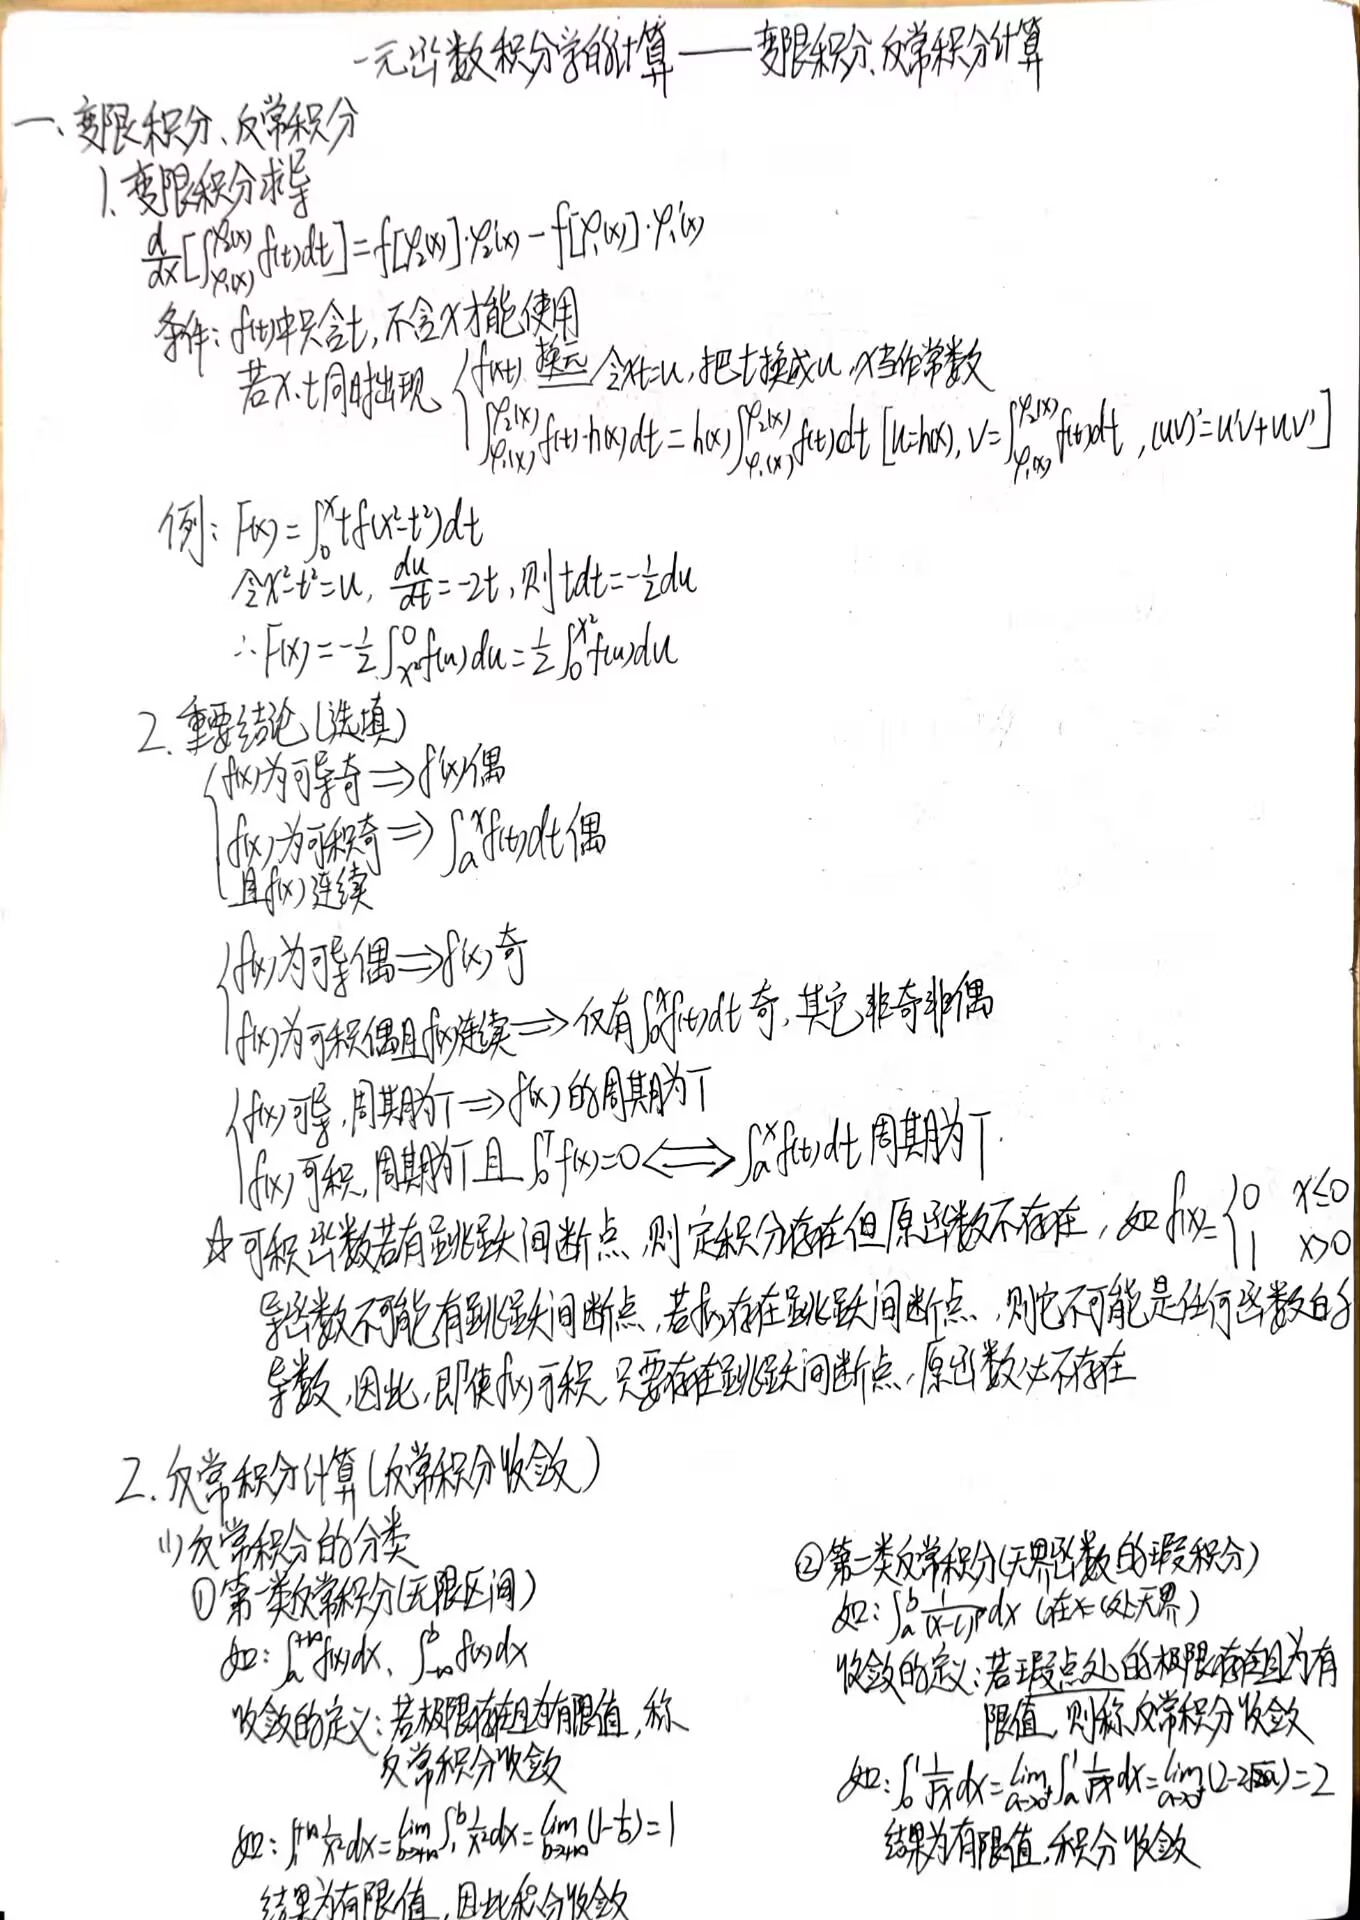 一元函数积分学的计算——变限积分、反常积分计算
一、变限积分、反常积分
1、变限积分求导
d/dx[∫_{φ₁(x)}^{φ₂(x)} f(t)dt]=f[φ₂(x)]·φ₂'(x)-f[φ₁(x)]·φ₁'(x)
条件：f(t)中只含t，不含x才能使用
若x、t同时出现 { f(xt) 换元 令xt=u，把t换成u，x当作常数
∫_{φ₁(x)}^{φ₂(x)} f(t)·h(x)dt=h(x)∫_{φ₁(x)}^{φ₂(x)} f(t)dt [u=h(x)，v=∫_{φ₁(x)}^{φ₂(x)} f(t)dt，(uv)'=u'v+uv']
例：F(x)=∫₀ˣ tf(x²-t²)dt
令x²-t²=u，du/dt=-2t，则tdt=-½du
∴F(x)=-½∫_{x²}^{0} f(u)du=½∫₀^{x²} f(u)du
2、重要结论(选填)
{ f(x)为可导奇⇒f'(x)偶
f(x)为可积奇⇒∫ₐˣ f(t)dt偶
且f(x)连续
{ f(x)为可导偶⇒f'(x)奇
f(x)为可积偶且f(x)连续⇒仅有∫₀ˣ f(t)dt奇，其它非奇非偶
{ f(x)可导，周期为T⇒f'(x)的周期为T
f(x)可积，周期为T且∫₀ᵀ f(x)=0⇔∫ₐˣ f(t)dt周期为T.
☆可积函数若有跳跃间断点，则定积分存在但原函数不存在，如f(x)={ 0 x≤0
1 x>0
导函数不可能有跳跃间断点，若f(x)存在跳跃间断点，则它不可能是任何函数的
导数，因此，即使f(x)可积，只要存在跳跃间断点，原函数必不存在
2.反常积分计算(反常积分收敛)
(1)反常积分的分类
①第一类反常积分(无限区间)
如：∫ₐ^{+∞} f(x)dx、∫_{-∞}^{b} f(x)dx
收敛的定义：若极限存在且为有限值，称
反常积分收敛
如：∫₁^{+∞} 1/x² dx=lim_{b→+∞}∫₁ᵇ 1/x² dx=lim_{b→+∞}(1-1/b)=1
结果为有限值，因此积分收敛
②第二类反常积分(无界函数的瑕积分)
如：∫ₐᵇ 1/(x-c)ᵖ dx (在x=c处无界)
收敛的定义：若瑕点处的极限存在且为有
限值，则称反常积分收敛
如：∫₀¹ 1/√x dx=lim_{a→0⁺}∫ₐ¹ 1/√x dx=lim_{a→0⁺}(2-2√a)=2
结果为有限值，积分收敛